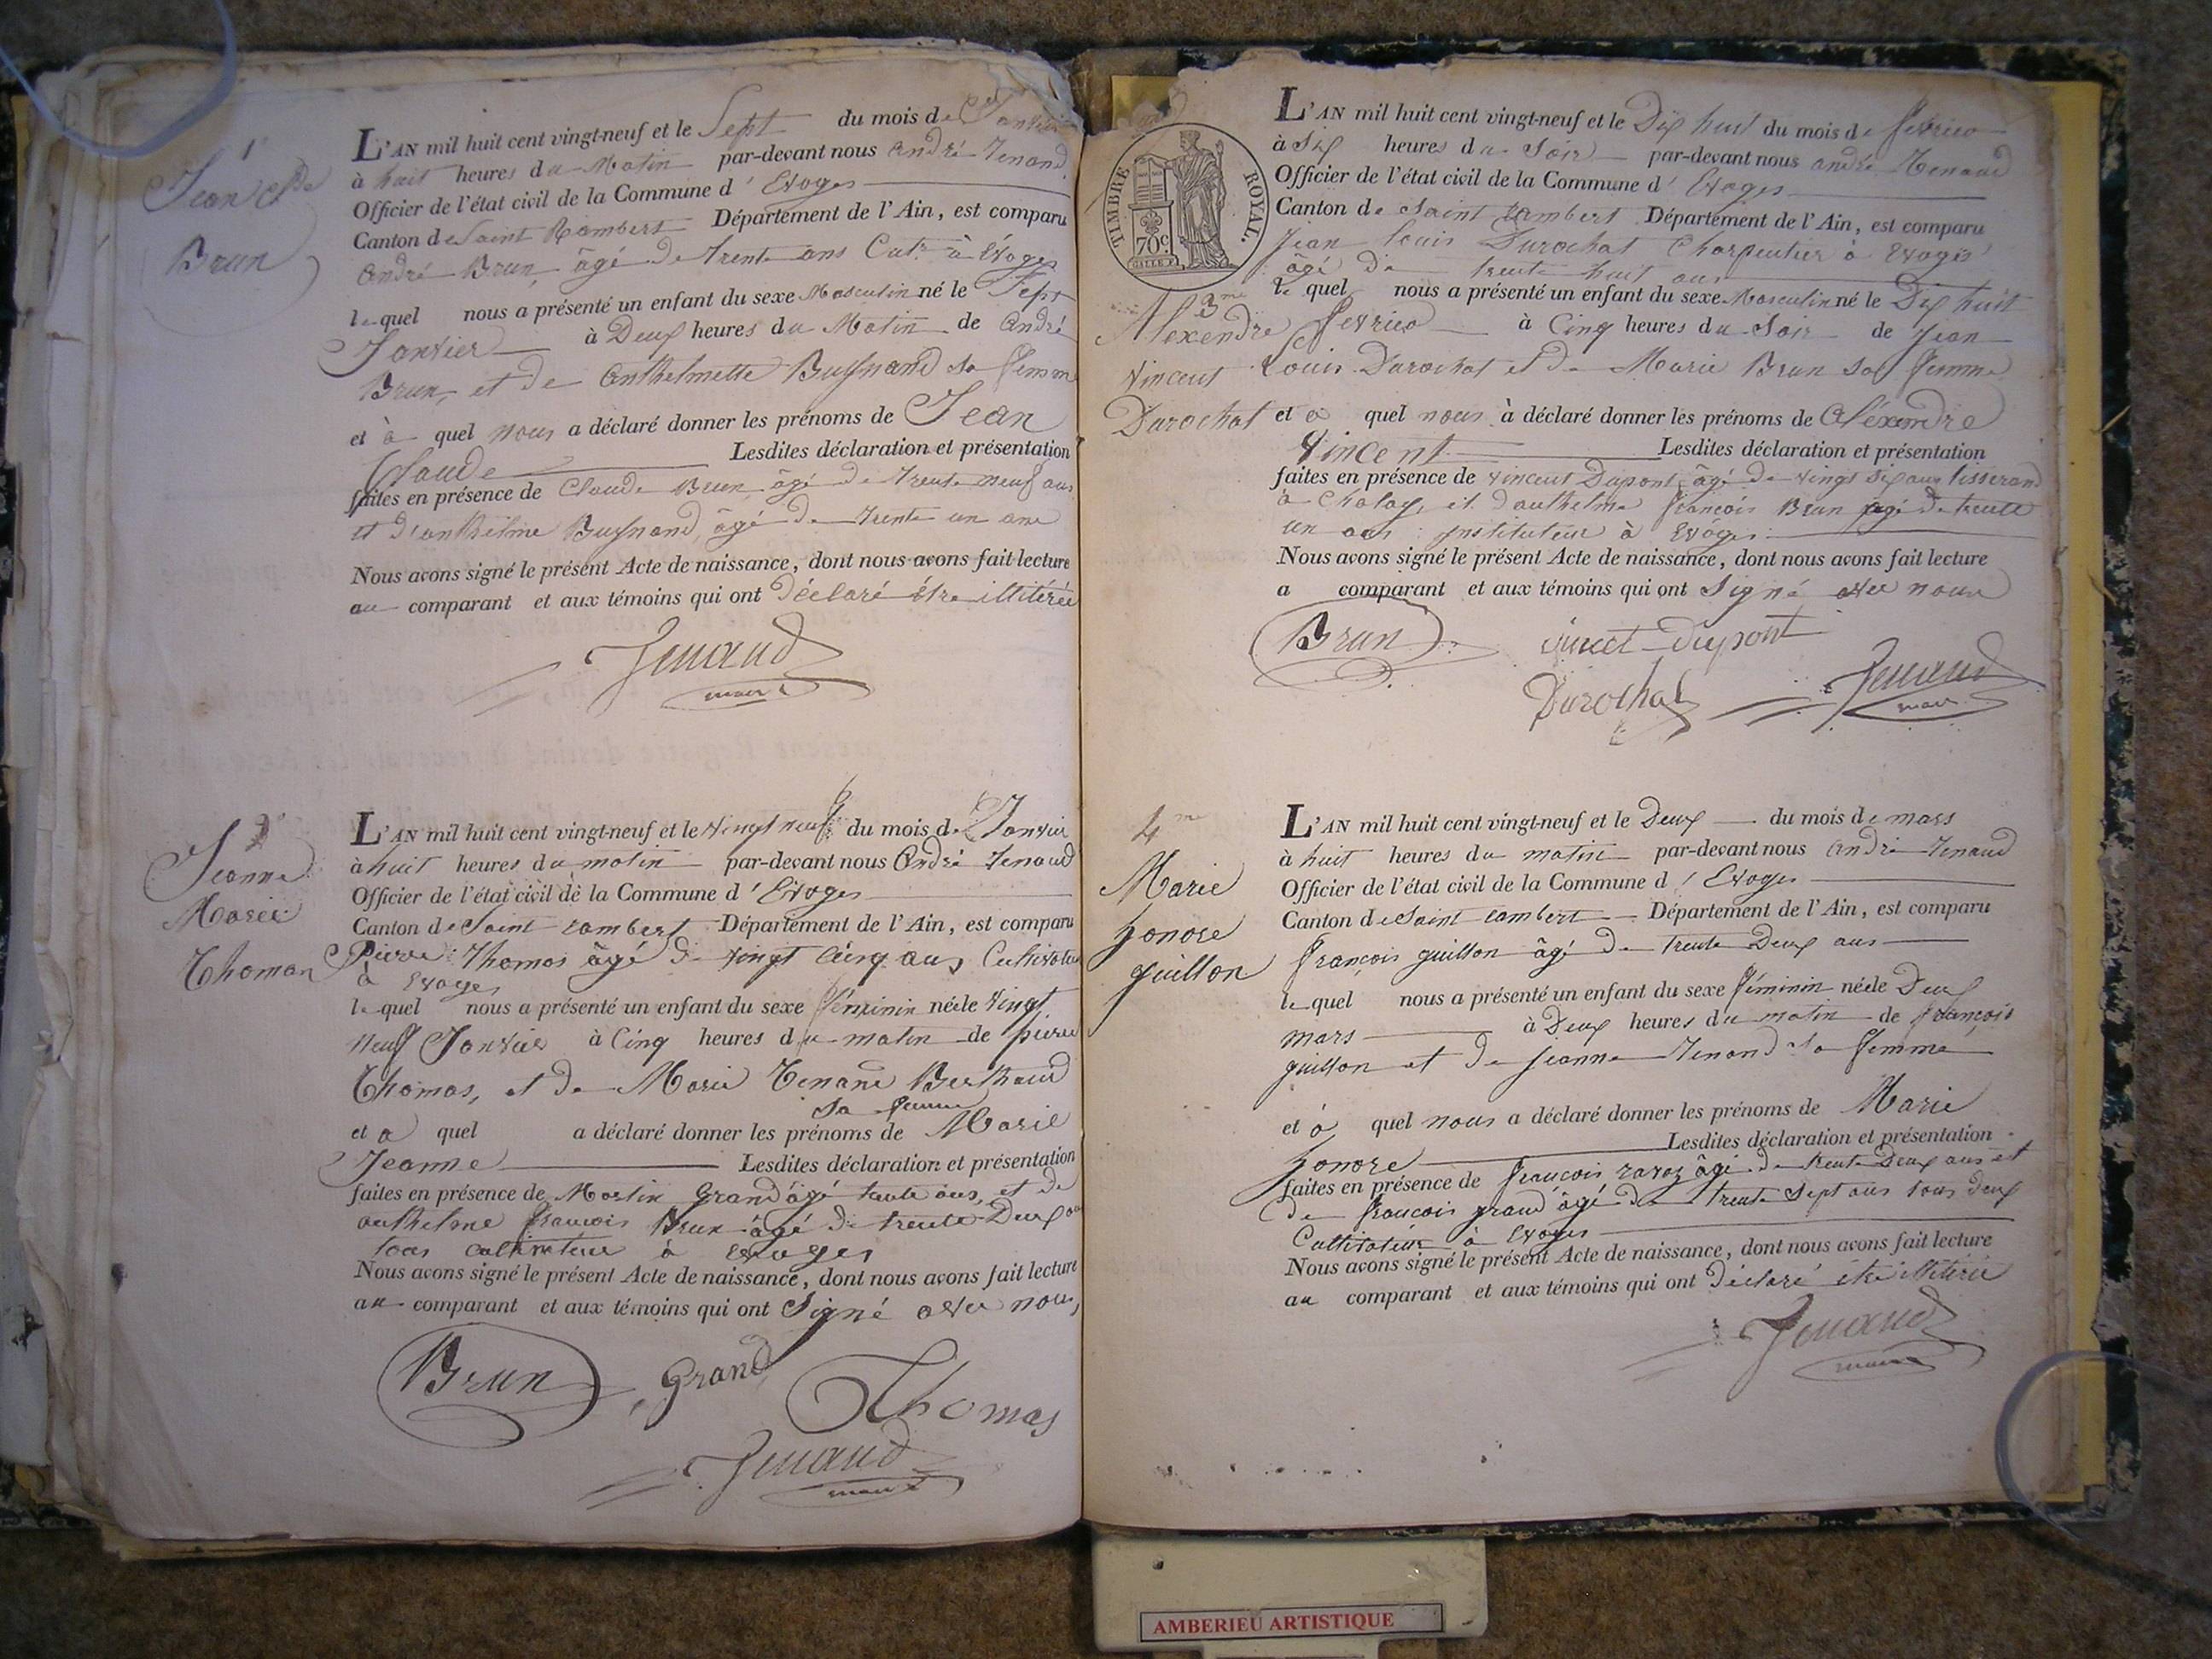 1r
Jean Cde
Brun
L'AN mil huit cent vingt-neuf et le Sept du mois de Janvier
à huit heures du Matin par-devant nous André Tenand
Officier de l'état civil de la Commune d' Evoges
Canton de Saint Rambert Département de l'Ain, est comparu
André Brun, âgé de trente ans Cultr à Evoges
lequel nous a présenté un enfant du sexe Masculin né le Sept
Janvier à Deux heures du Matin de André
Brun, et de Anthelmette Buynand sa femme
et à quel nous a déclaré donner les prénoms de Jean
Claude Lesdites déclaration et présentation
faites en présence de Claude Brun âgé de trente neuf ans
et d'anthelme Buynand, âgé de trente un ans
Nous avons signé le présent Acte de naissance, dont nous avons fait lecture
au comparant et aux témoins qui ont déclaré être illitérés
Tenand
maire
Jeanne
Marie
Thomas
L'AN mil huit cent vingt-neuf et le vingt neuf du mois de Janvier
à huit heures du matin par-devant nous André Tenand
Officier de l'état civil de la Commune d' Evoges
Canton de Saint rambert Département de l'Ain, est comparu
Pierre Thomas âgé de vingt cinq ans, Cultivateur
à Evoges
lequel nous a présenté un enfant du sexe féminin née le vingt
neuf Janvier à Cinq heures du matin de pierre
Thomas, et de Marie Tenand Berthaud
sa femme
et a quel a déclaré donner les prénoms de Marie
Jeanne Lesdites déclaration et présentation
faites en présence de Martin Grand âgé trente ans, et de
anthelme francois Brun âgé de trente Deux ans
tous cultivateur à evoges
Nous avons signé le présent Acte de naissance, dont nous avons fait lecture
au comparant et aux témoins qui ont Signé avec nous,
Brun Grand Thomas
Tenand
maire
TIMBRE ROYAL.
70c.
3me
Alexendre
Vincent
Durochat
L'AN mil huit cent vingt-neuf et le Dix huit du mois de fevrier
à Six heures du Soir par-devant nous andré Tenand
Officier de l'état civil de la Commune d' Evoges
Canton de Saint rambert Département de l'Ain, est comparu
Jean Louis Durochat Charpentier à Evoges
âgé de trente huit ans
lequel nous a présenté un enfant du sexe Masculin né le Dix huit
fevrier à Cinq heures du Soir de Jean
Louis Durochat et de Marie Brun sa femme
et a quel nous à déclaré donner les prénoms de Alexendre
Vincent Lesdites déclaration et présentation
faites en présence de vincent Dupont âgé de vingt six ans tisserand
à Chaley, et d'anthelme francois Brun âgé de trente
un ans instituteur à Evoges
Nous avons signé le présent Acte de naissance, dont nous avons fait lecture
a comparant et aux témoins qui ont Signé avec nous
Brun vincet Dupont
Durochat Tenand
maire
4me
Marie
honore
guillon
L'AN mil huit cent vingt-neuf et le Deux du mois de mars
à huit heures du matin par-devant nous andré Tenand
Officier de l'état civil de la Commune d' Evoges
Canton de Saint rambert Département de l'Ain, est comparu
françois guillon âgé de trente Deux ans
lequel nous a présenté un enfant du sexe féminin née le Deux
mars à Deux heures du matin de françois
guillon et de jeanne Tenand sa femme
et à quel nous a déclaré donner les prénoms de Marie
honore Lesdites déclaration et présentation
faites en présence de francois ravoz âgé de trente Deux ans et
de francois grand âgé de trente Sept ans tous deux
Cultivateur à Evoges
Nous avons signé le présent Acte de naissance, dont nous avons fait lecture
au comparant et aux témoins qui ont déclaré être illitérés
Tenand
maire
AMBERIEU ARTISTIQUE